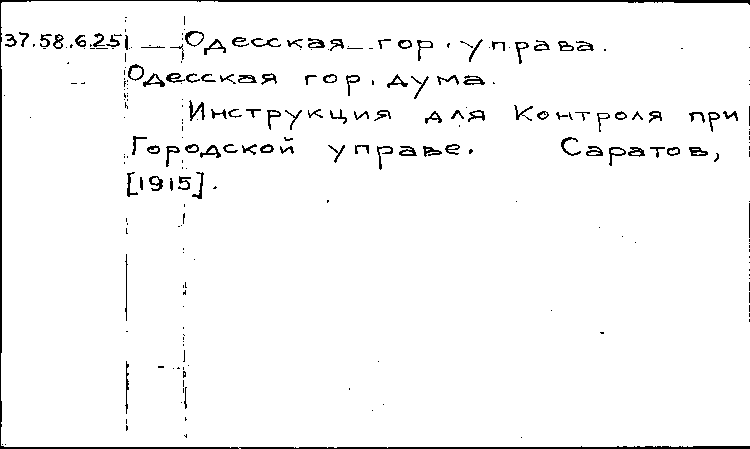 37.58.625 Одесская гор. управа.
Одесская гор. дума.
Инструкция для Контроля при
Городской управе. Саратов,
[1915].